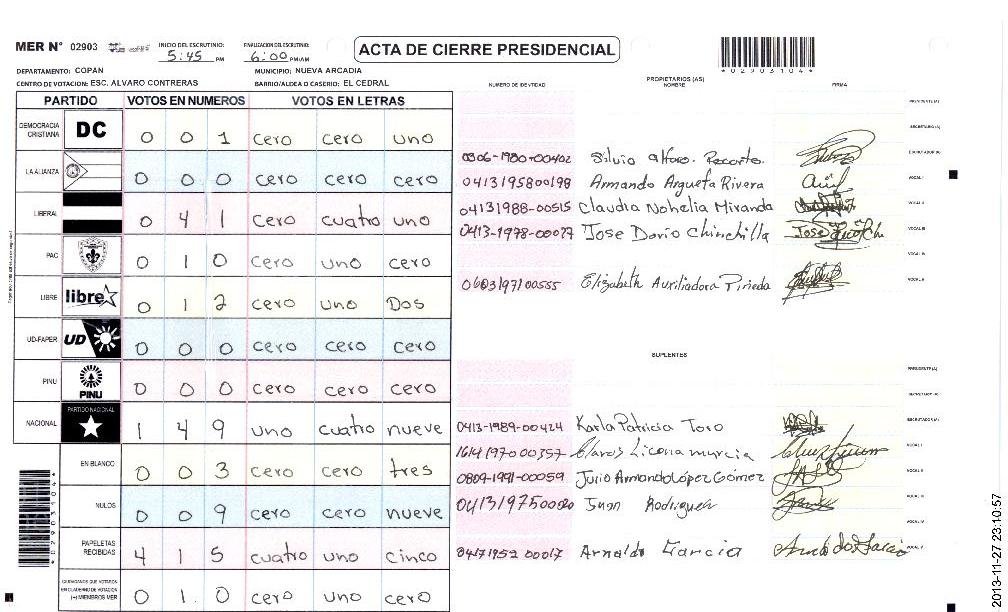 MER N° 02903 INICIO DEL ESCRUTINIO: 5:45 PM FINALIZACION DEL ESCRUTINIO: 6:00 PM/AM
ACTA DE CIERRE PRESIDENCIAL
*02903104*
DEPARTAMENTO: COPAN MUNICIPIO: NUEVA ARCADIA
CENTRO DE VOTACION: ESC. ALVARO CONTRERAS BARRIO/ALDEA O CASERIO: EL CEDRAL
PARTIDO VOTOS EN NUMEROS VOTOS EN LETRAS
DEMOCRACIA CRISTIANA DC 0 0 1 cero cero uno
LA ALIANZA 0 0 0 cero cero cero
LIBERAL 0 4 1 cero cuatro uno
PAC 0 1 0 cero uno cero
LIBRE libre 0 1 2 cero uno Dos
UD-FAPER UD 0 0 0 cero cero cero
PINU PINU 0 0 0 cero cero cero
NACIONAL PARTIDO NACIONAL 1 4 9 uno cuatro nueve
EN BLANCO 0 0 3 cero cero tres
NULOS 0 0 9 cero cero nueve
PAPELETAS RECIBIDAS 4 1 5 cuatro uno cinco
CIUDADANOS QUE VOTARON EN CUADERNO DE VOTACION (+) MIEMBROS MER 0 1 0 cero uno cero
*02903104*
NUMERO DE IDENTIDAD PROPIETARIOS (AS) NOMBRE FIRMA
PRESIDENTE (A)
SECRETARIO (A)
0306-1980-00402 Silvio Alfaro. ESCRUTADOR (A)
0413195800198 Armando Argueta Rivera VOCAL I
04131988-00515 Claudia Nohelia Miranda VOCAL II
0413-1978-00077 Jose Dario Chinchilla VOCAL III
VOCAL IV
0603197100555 Elizabeth Auxiliadora Pineda VOCAL V
SUPLENTES
PRESIDENTE (A)
SECRETARIO (A)
0413-1989-00424 Karla Patricia Toro ESCRUTADOR (A)
1614197000357 Licona murcia VOCAL I
0809-1991-00059 Julio Armando López Gómez VOCAL II
Juan Rodriguez VOCAL III
VOCAL IV
04171952 00017 Arnaldo Garcia VOCAL V
2013-11-27 23:10:57